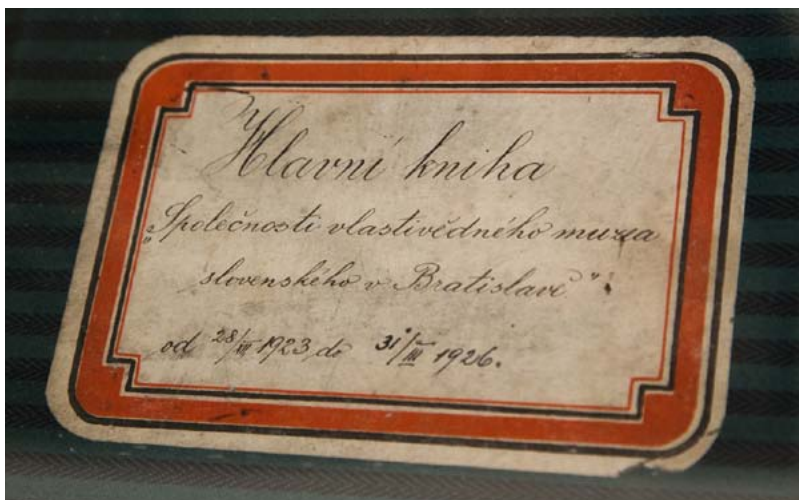 Hlavní kniha
„Společnosti vlastivědného muzea
slovenského v Bratislavě"
od 28/III 1923 do 31/III 1926.